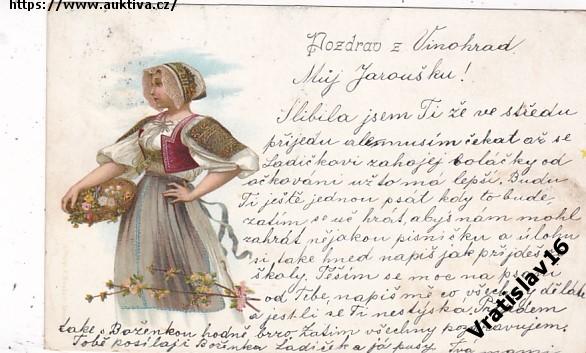 https://www.auktiva.cz/
Pozdrav z Vinohrad
Můj Jaroušku!
Slibila jsem Ti že ve středu
přijedu ale musím čekat až se
Ladičkovi zahojej boláčky od
očkování už to má lepší. Budu
Ti ještě jednou psát kdy to bude,
zatím se uč hrát, abys nám mohl
zahrát nějakou písničku a úlohu
si také hned napiš jak přijdeš
školy. Těším se moc na
od Tebe, napiš mě co všechny děláte
a jestli se Ti nestýská,
také s Boženkou hodně brzo, Zatím všechny
Tobě posílají Boženka Ladíček a já pusy
Vratislav16